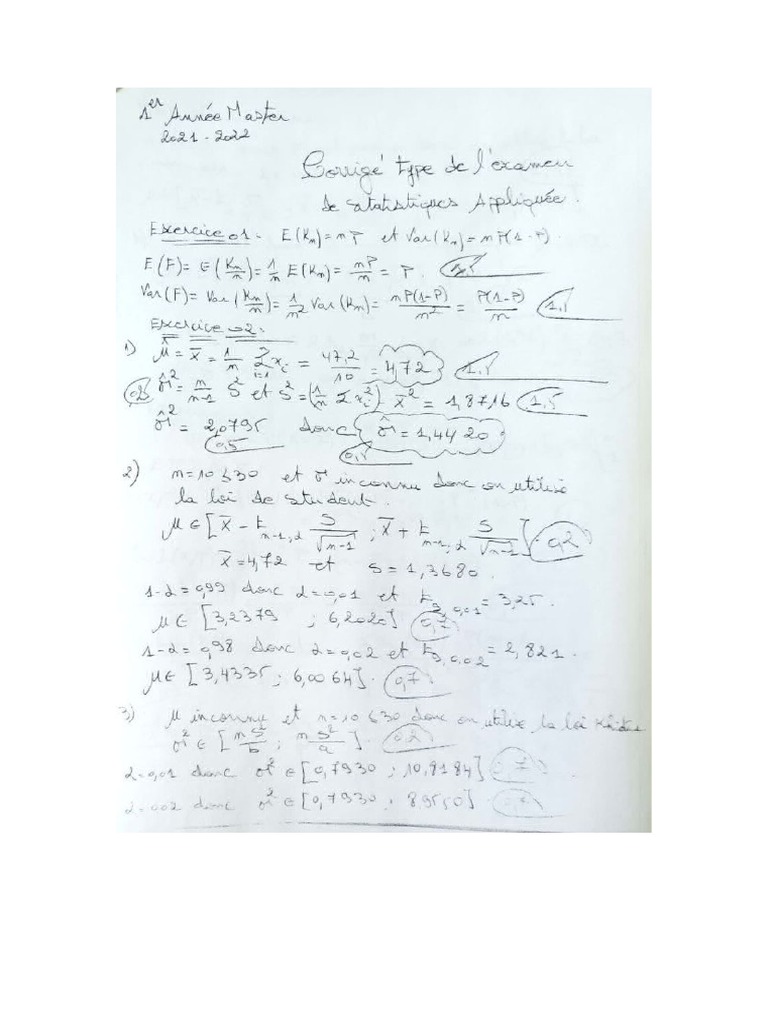 1er Année Master
2021-2022
Corrigé type de l'examen
de statistiques Appliquée.
Exercice 01 - E(Kn)=nP et Var(Kn)=nP(1-P).
E(F)= E(Kn/n)= 1/n E(Kn)= nP/n = P. 1,5
Var(F)= Var(Kn/n)= 1/n² Var(Kn)= nP(1-P)/n² = P(1-P)/n 1,5
Exercice 02:
1) μ̂ = x̄ = 1/n Σxi = 47,2/10 = 4,72 1,5
0,5 σ̂² = n/n-1 S² et S² = (1/n Σxi²) x̄² = 1,8716 1,5
σ̂² = 2,0795 donc σ̂ = 1,4420
0,5 0,5
2) n=10≤30 et σ inconnu donc on utilise
la loi de student.
μ ∈ [x̄ - t n-1,α S/√n-1 ; x̄ + t n-1,α S/√n-1] 0,2
x̄=4,72 et S=1,3680.
1-α=0,99 donc α=0,01 et t 9,0,01 = 3,25.
μ ∈ [3,2379 ; 6,2020] 0,7
1-α=0,98 donc α=0,02 et t 9,0,02 = 2,821.
μ ∈ [3,4335 ; 6,0064]. 0,7
3) μ inconnu et n=10≤30 donc on utilise la loi
σ² ∈ [nS²/b ; nS²/a]. 0,2
α=0,01 donc σ² ∈ [0,7930 ; 10,8184] 0,7
α=0,02 donc σ² ∈ [0,7930 ; 8,9550] 0,7